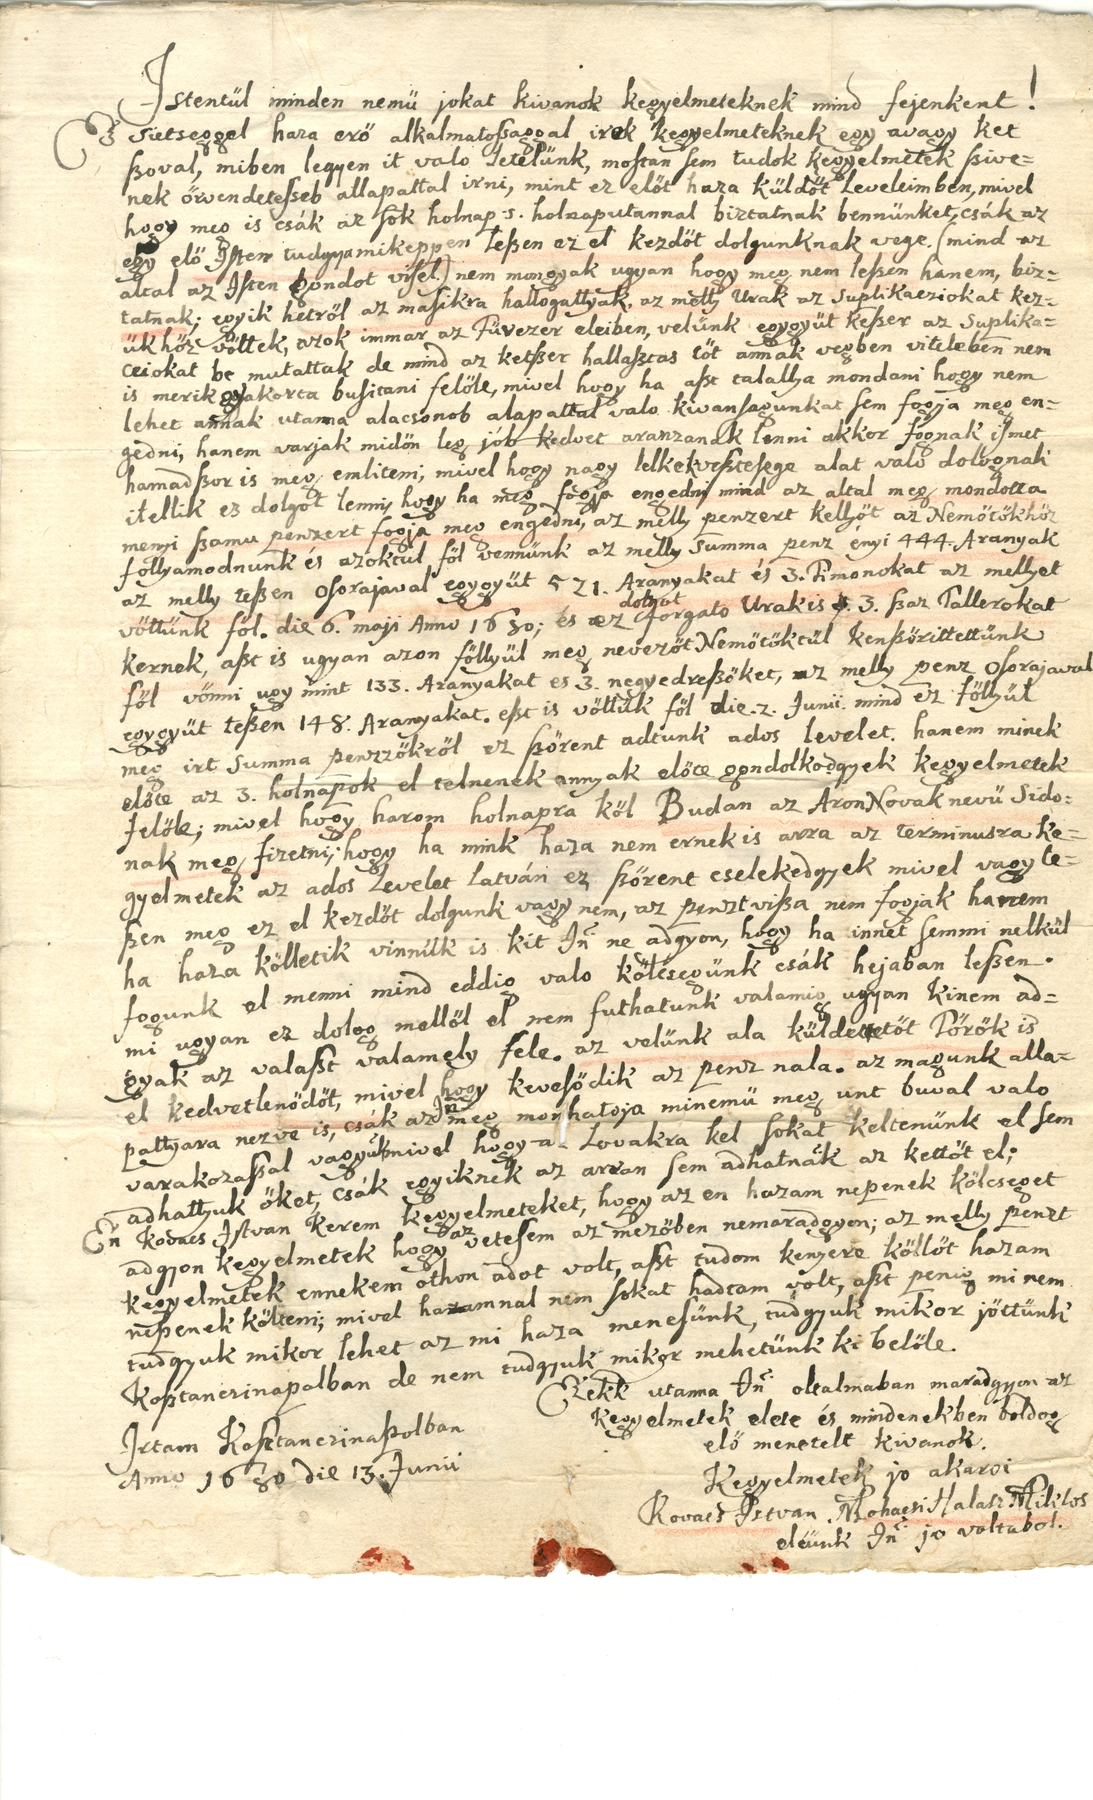 Istentül minden nemü jokat kivanok kegyelmeteknek mind fejenkent!
Ez sietseggel haza erö alkalmatoßaggal irok kegyelmeteknek egy avagy ket
ßoval, miben legyen it valo letelünk, mostan sem tudok kegyelmetek ßive=
nek örvendetesseb allapattal irni, mint ez elöt haza küldöt Leveleimben, mivel
hogy meg is csák az sok holnap s. holnaputannal biztatnak bennünket, csák az
egy elö Isten tudgya mikeppen leßen ez el kezdöt dolgunknak vege. (mind az
altal az Isten gondot visel.) nem mongyak ugyan hogy meg nem leßen hanem, biz=
tatnak; egyik hetröl az masikra hallogattyak, az melly Urak az suplikacziokat kez=
ükhöz vöttek, azok immar az Füvezer eleiben, velünk egygyüt keßer az Suplika=
cziokat be mutattak de mind az ketßer hallasztas löt annak vegben vitelében nem
is merik gyakorta busitani felöle, mivel hogy ha aßt talallya mondani hogy nem
lehet annak utanna alacsonob alapattal valo kivansagunkat sem fogja meg en=
gedni, hanem varjak midön leg jób kedvet aranzanak lenni akkor fognak ismet
hamadßor is meg emliteni; mivel hogy nagy lelkek veßtesege alat valo dolognak
itellik ez dolgot lenni, hogy ha meg fogja engedni mind az altal meg mondotta
menyi ßamu penzert fogja meg engedni, az melly penzert kellyöt az Nemötökhöz
follyamodnunk és azoktul föl vennünk az melly Summa penz enyi 444. Aranyak
az melly teßen Osorajaval egygyüt 521. Aranyakat és 3. Timonokat az mellyet
vöttünk föl. die 6. maji Anno 1680; és ez dolgot forgato Urak is 3. ßaz Tallerokat
kernek, aßt is ugyan azon föllyül meg nevezöt Nemötöktül kenßörittettünk
föl vönni ugy mint 133. Aranyakat es 3. negyedreßöket, az melly penz Osorajaval
egygyüt teßen 148. Aranyakat. eßt is vöttük föl die. 2. Junii. mind ez föllyül
meg irt Summa penzzökröl ez ßörent adtunk ados levelet. hanem minek
elötte az 3. holnapok el telnenek annyak elöte gondolkodgyek kegyelmetek
felöle; mivel hogy harom holnapra köl Budan az Aron Novak nevü Sido=
nak meg fizetni; hogy ha mink haza nem ernek is arra az terminusra ke=
gyelmetek az ados Levelet Latván ez ßörent cselekedgyek mivel vagy le=
ßen meg ez el kezdöt dolgunk vagy nem, az penzt vißa nem fogjak hanem
ha haza kölletik vinnülk is kit Isn ne adgyon, hogy ha innet semmi nelkül
fogunk el menni mind eddig valo költsegünk csák hejaban leßen.
mi ugyan ez dolog mellöl el nem futhatunk valamig ugyan kinem ad=
gyak az valaßt valamely fele. az velünk ala küldettetöt Török is
el kedvetlenödöt, mivel hogy kevesödik az penz nala. az magunk alla=
pattyara nezve is, csák az Isn meg monhatoja minemü meg unt buval valo
varakozassal vagyük mivel hogy a Lovakra kel sokat keltenünk el sem
adhattyuk öket, csák egyiknek az arran sem adhatnák az kettöt el;
En Kovacs Istvan kerem kegyelmeteket, hogy az en hazam nepenek kölcseget
adgyon kegyelmetek hogy az vetesem az mezöben nemaradgyon; az melly penzt
kegyelmetek ennekem othon adot volt, aßt tudom kenyere köllöt hazam
nepenek költeni; mivel hazamnal nem sokat hadtam volt, aßt penig mi nem
tudgyuk mikor lehet az mi haza menesünk, tudgyuk mikor jöttünk
Kostanczinapalban de nem tudgyuk mikor mehetünk ki belöle.
Ezekk utanna Isn oltalmaban maradgyon az
kegyelmetek elete és mindenekben boldog
elö menetelt kivanok.
Irtam Kostanczinapolban
Anno 1680 die 13. Junii
Kegyelmetek jo akaroi
Kovacs Istvan Mohacsi Halasz Miklos
elünk Isn jo voltabol.